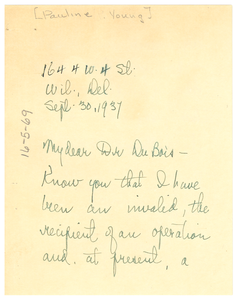 [Pauline Young]
1644 W. 4 St.
Wil., Del.
Sept. 30, 1937
16-5-69
My dear Dr Du Bois -
Know you that I have
been an invalid, the
recipient of an operation
and, at present, a